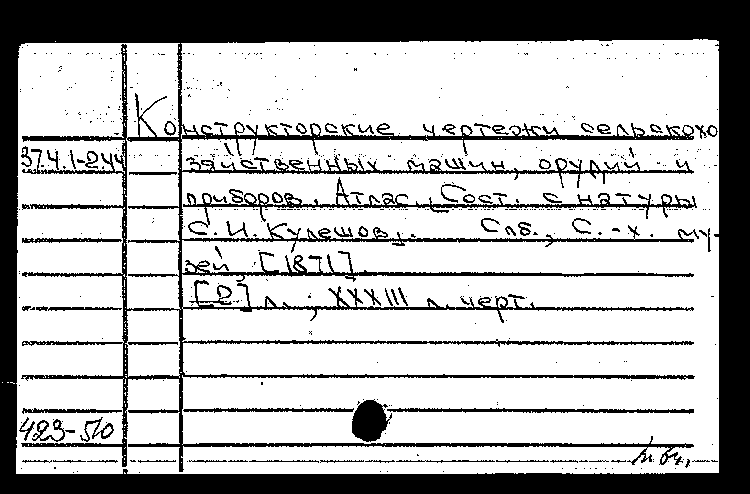 Конструкторские чертежи сельскохо
37.4.1-244 зяйственных машин, орудий и
приборов. Атлас. Сост. с натуры
С. И. Кулешов. Спб., С.-х. му-
зей, [1871].
[2] л.; XXXIII л. черт.
423-50